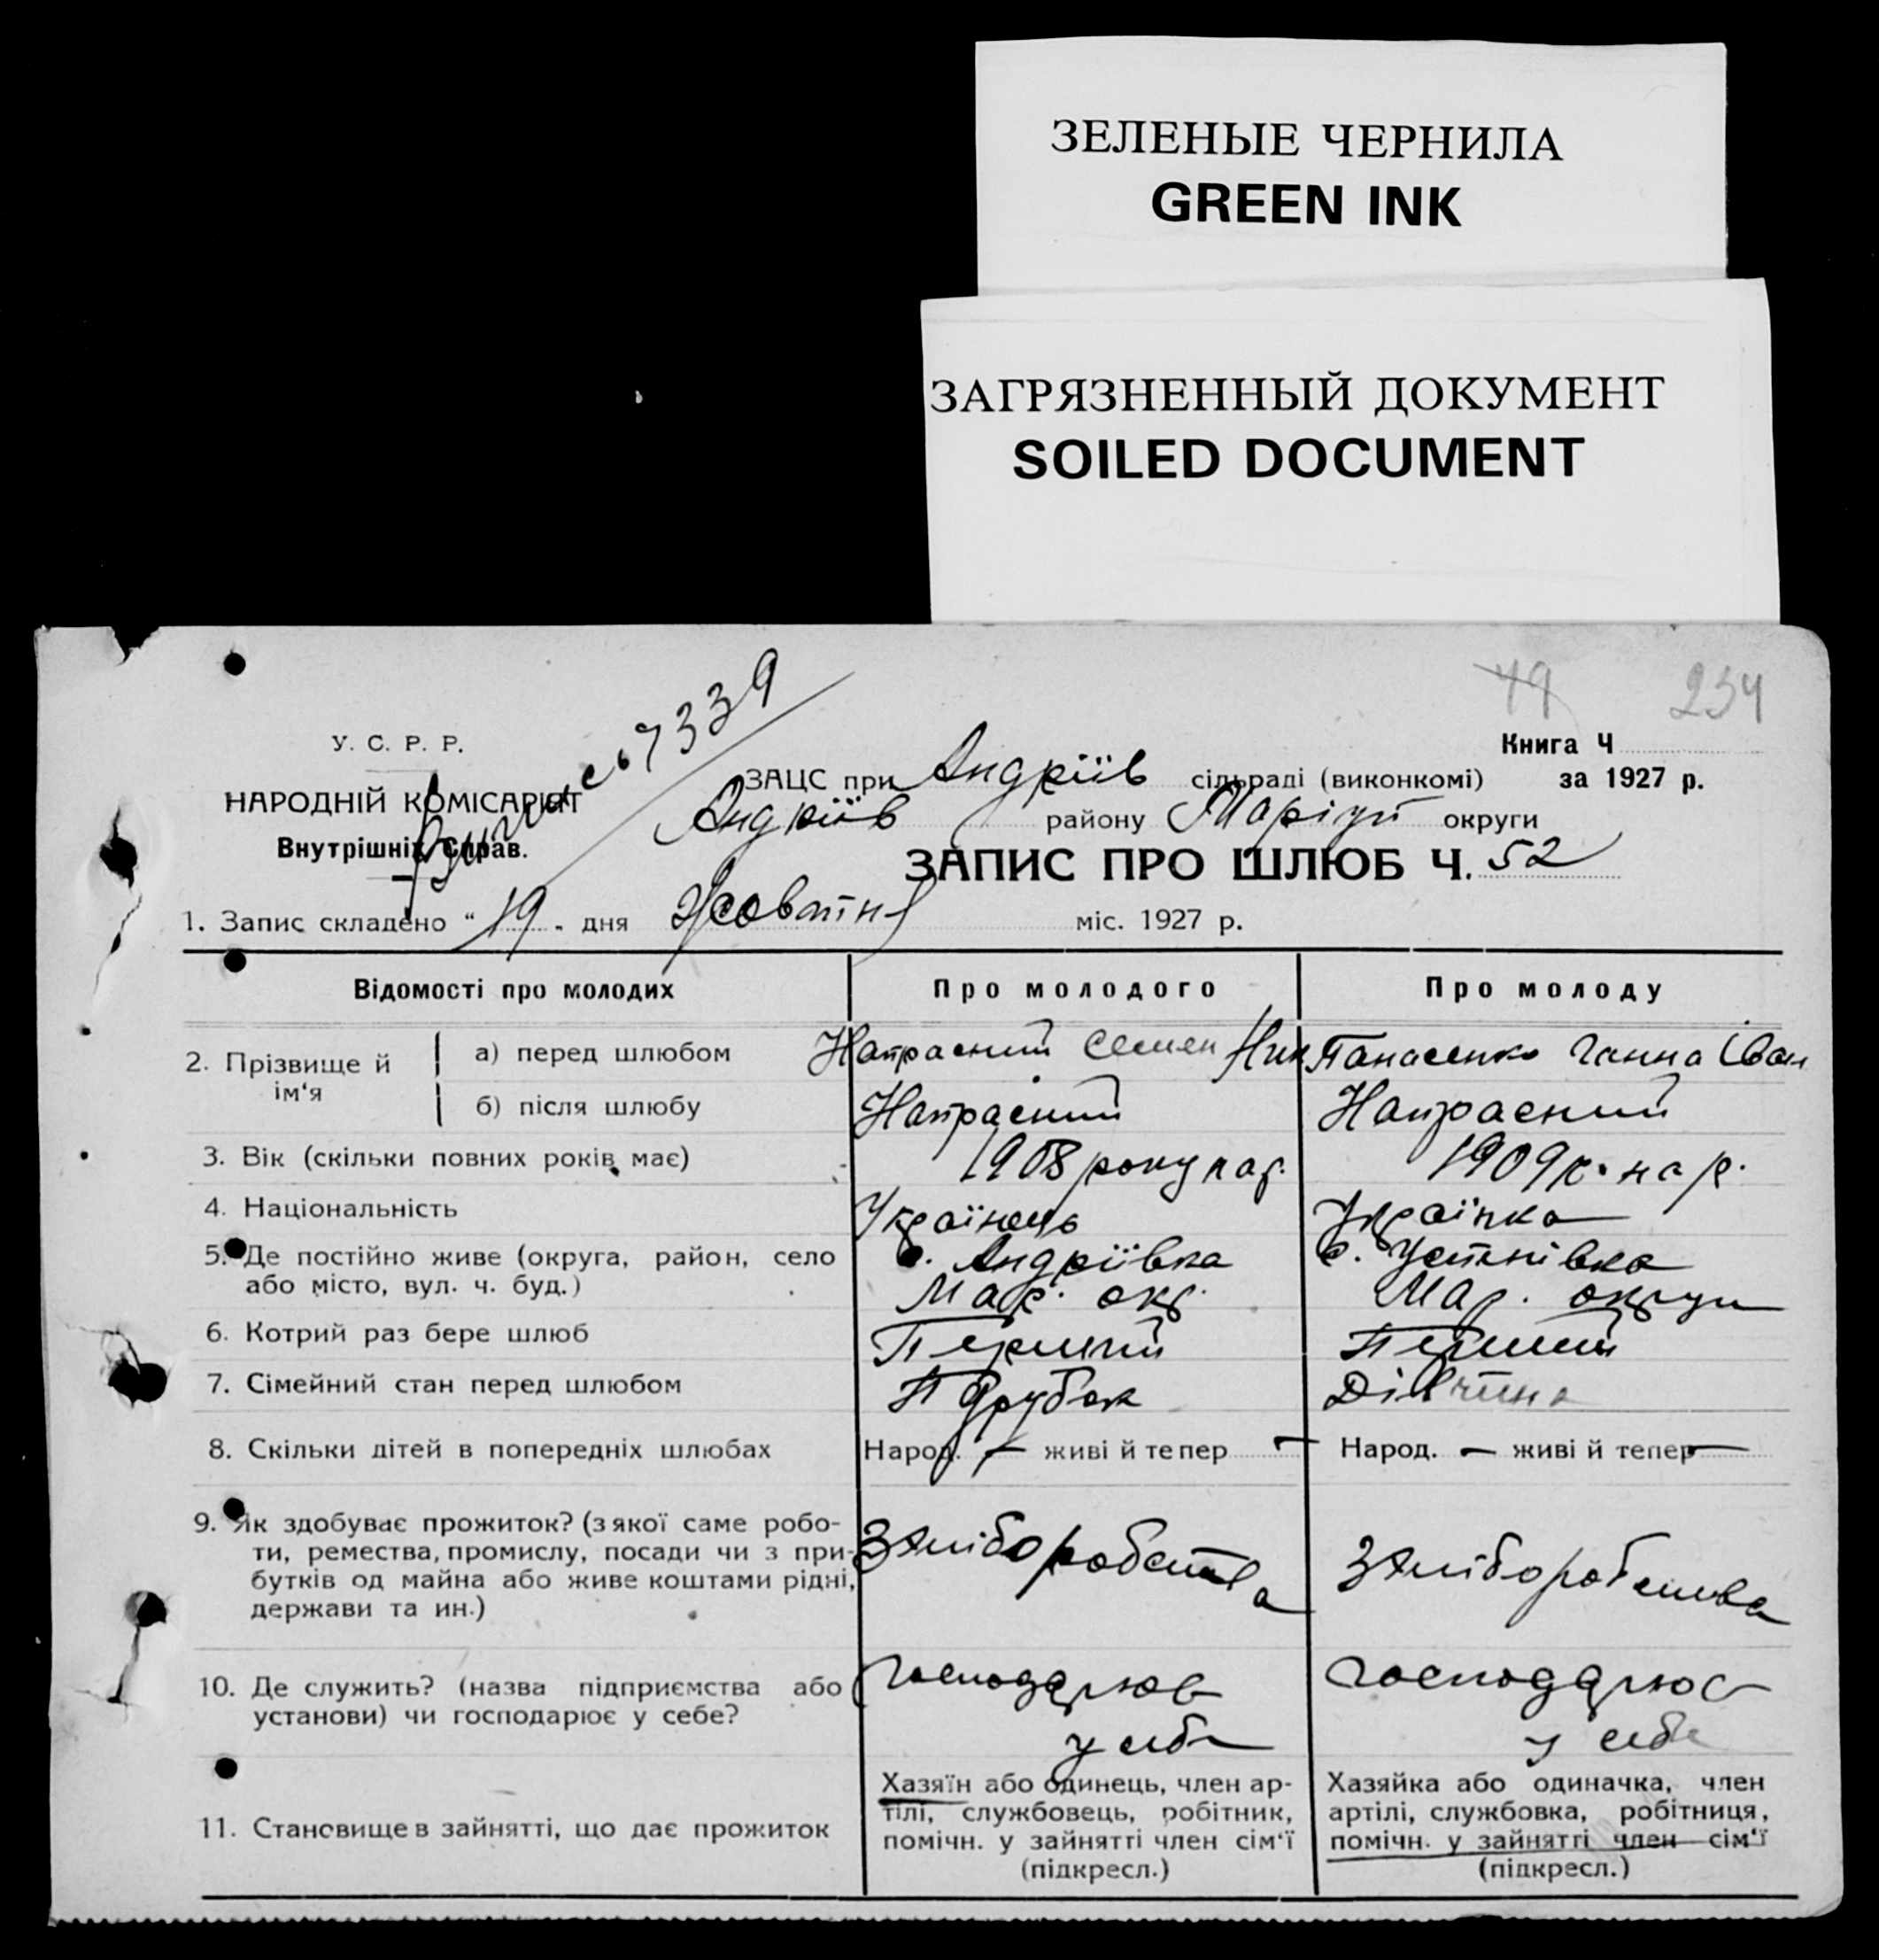 ЗЕЛЕНЫЕ ЧЕРНИЛА
GREEN INK
ЗАГРЯЗНЕННЫЙ ДОКУМЕНТ
SOILED DOCUMENT
49 234
7339
У. С. Р. Р.
НАРОДНІЙ КОМІСАРІЯТ
Внутрішніх Справ.
Книга Ч
за 1927 р.
ЗАЦС при Андріїв сільраді (виконкомі)
Андріїв району Маріуп округи
ЗАПИС ПРО ШЛЮБ Ч. 52
1. Запис складено "19" дня Жовтня міс. 1927 р.
Відомості про молодих Про молодого Про молоду
2. Прізвище й ім‘я
а) перед шлюбом Напрасний Семен Ник Панасенко Ганна Іван
б) після шлюбу Напрасний Напрасний
3. Вік (скільки повних років має) 1908 року нар. 1909 р. нар.
4. Національність Українець Українка
5. Де постійно живе (округа, район, село
або місто, вул. ч. буд.)
с. Андріївка
Мар. окр.
с. Устнівка
Мар. округи
6. Котрий раз бере шлюб Перший Перший
7. Сімейний стан перед шлюбом Парубок Дівчина
8. Скільки дітей в попередніх шлюбах Народ. — живі й тепер — Народ. — живі й тепер —
9. Як здобуває прожиток? (з якої саме робо-
ти, ремества, промислу, посади чи з при-
бутків од майна або живе коштами рідні,
держави та ин.)
З хліборобства
З хліборобства
10. Де служить? (назва підприємства або
установи) чи господарює у себе?
Господарює
у себе
Господарює
у себе
11. Становище в зайнятті, що дає прожиток
Хазяїн або одинець, член ар-
тілі, службовець, робітник,
помічн. у зайнятті член сім‘ї
(підкресл.)
Хазяйка або одиначка, член
артілі, службовка, робітниця,
помічн. у зайнятті член сім‘ї
(підкресл.)